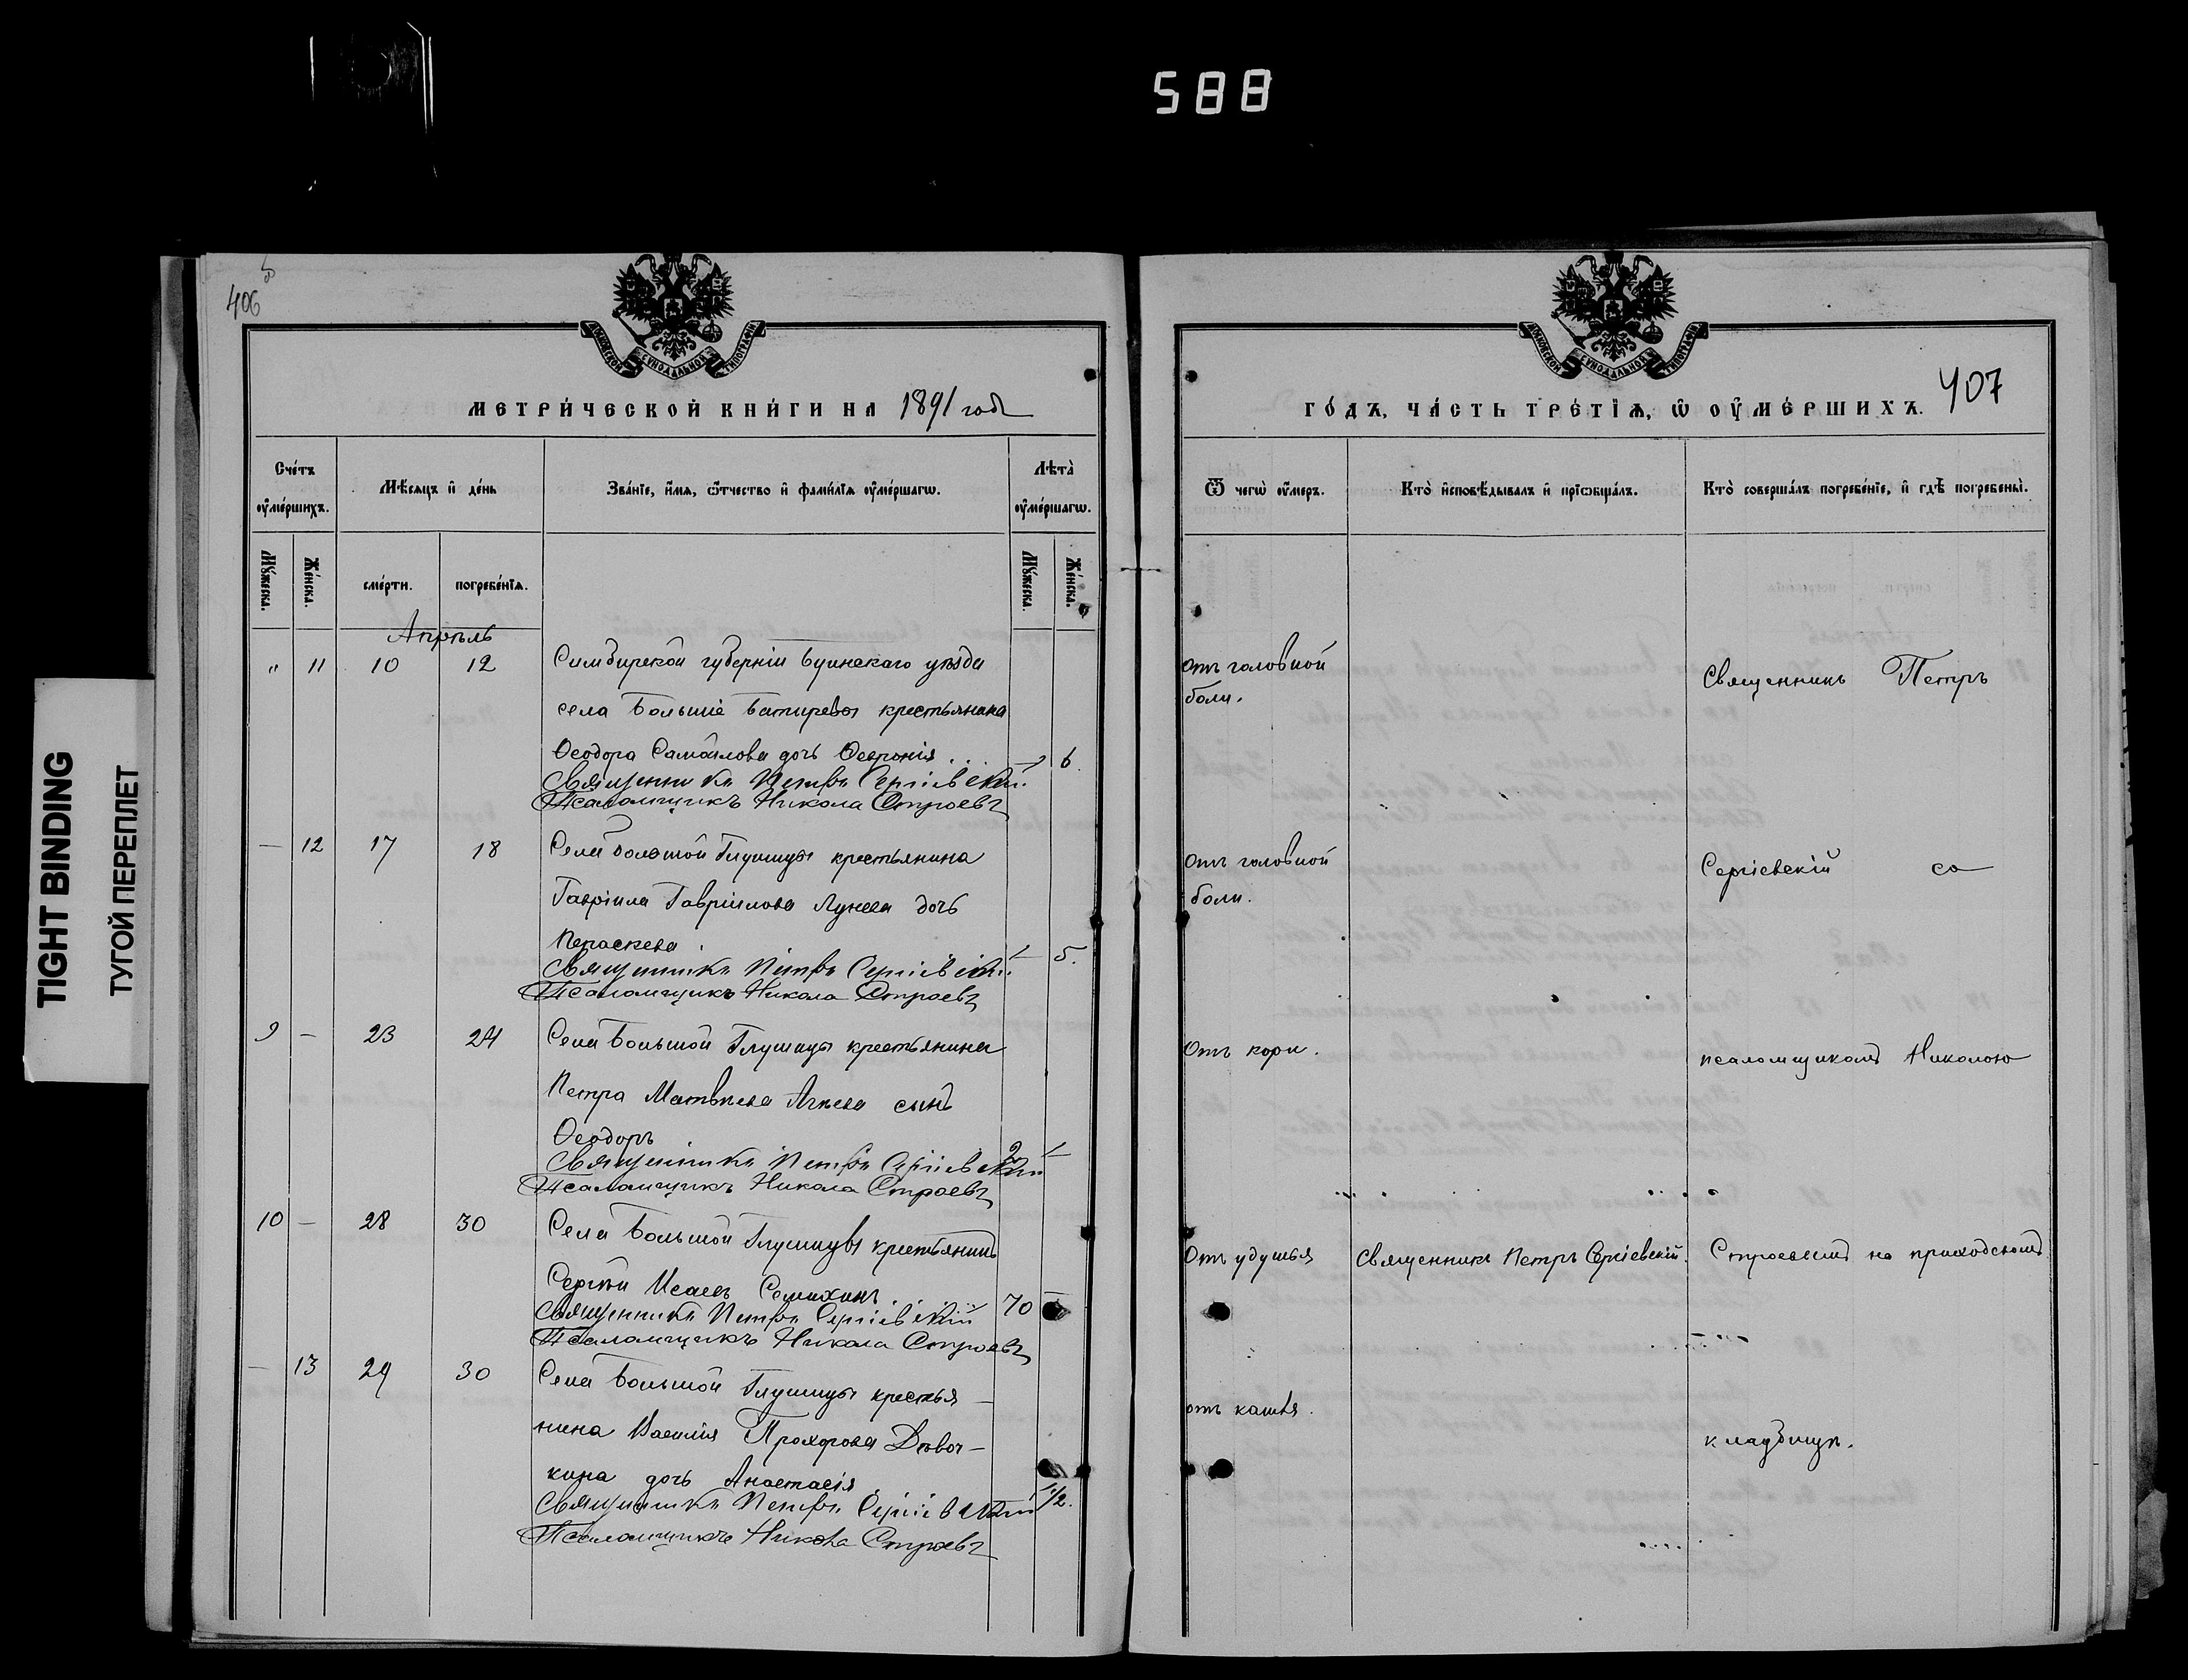 588
TIGHT BINDING
ТУГОЙ ПЕРЕПЛЕТ
406
МОСКОВСКОЙ СѴНОДАЛЬНОЙ ТИПОГРАФІИ
МЕТРИ́ЧЕСКОЙ КНИ́ГИ НА 1891 годъ
Сче́тъ ᲂу҆ме́ршихъ.
Мѣ́сяцъ и҆ де́нь
Зва́нїе, и҆́мѧ, ѻ҆́тчество и҆ фами́лїѧ ᲂу҆ме́ршагѡ.
Лѣта̀ ᲂу҆ме́ршагѡ.
Мꙋ́жеска.
Же́нска.
сме́рти.
погребе́нїѧ.
Мꙋ́жеска.
Же́нска.
Апрѣль
" 11 10 12 Симбирской губерніи Буинскаго уѣзда
села Большіе Батыревы крестьянина
Ѳеодора Самойлова дочь Ѳевронія 6.
Священникъ Петръ Сергіевскій
Псаломщикъ Никола Строевъ
— 12 17 18 Села Большой Глушицы крестьянина
Гавріила Гавріилова Лунева дочь
Параскева — 5.
Священникъ Петръ Сергіевскій
Псаломщикъ Никола Строевъ
9 — 23 24 Села Большой Глушицы крестьянина
Петра Матвѣева Агѣева сынъ
Ѳеодоръ 2 —
Священникъ Петръ Сергіевскій
Псаломщикъ Никола Строевъ
10 — 28 30 Села Большой Глушицы крестьянинъ
Сергѣй Исаевъ Семихинъ 70 —
Священникъ Петръ Сергіевскій
Псаломщикъ Никола Строевъ
— 13 29 30 Села Большой Глушицы крестья-
нина Василія Прохорова Дѣвоч-
кина дочь Анастасія 1/2.
Священникъ Петръ Сергіевскій
Псаломщикъ Никола Строевъ
МОСКОВСКОЙ СѴНОДАЛЬНОЙ ТИПОГРАФІИ
ГО́ДЪ, ЧА́СТЬ ТРЕ́ТЇѦ, Ѡ҆ ОУ҆МЕ́РШИХЪ. 407
Ѿ чегѡ̀ ᲂу҆́меръ.
Кто̀ и҆сповѣ́дывалъ и҆ прїѡбща́лъ.
Кто̀ соверша́лъ погребе́нїе, и҆ гдѣ̀ погребены̀.
Отъ головной
боли.
Священникъ Петръ
Отъ головной
боли.
Сергіевскій со
Отъ кори.
псаломщикомъ Николою
Отъ удушья
Священникъ Петръ Сергіевскій.
Строевымъ на приходскомъ
отъ кашля.
кладбищѣ.